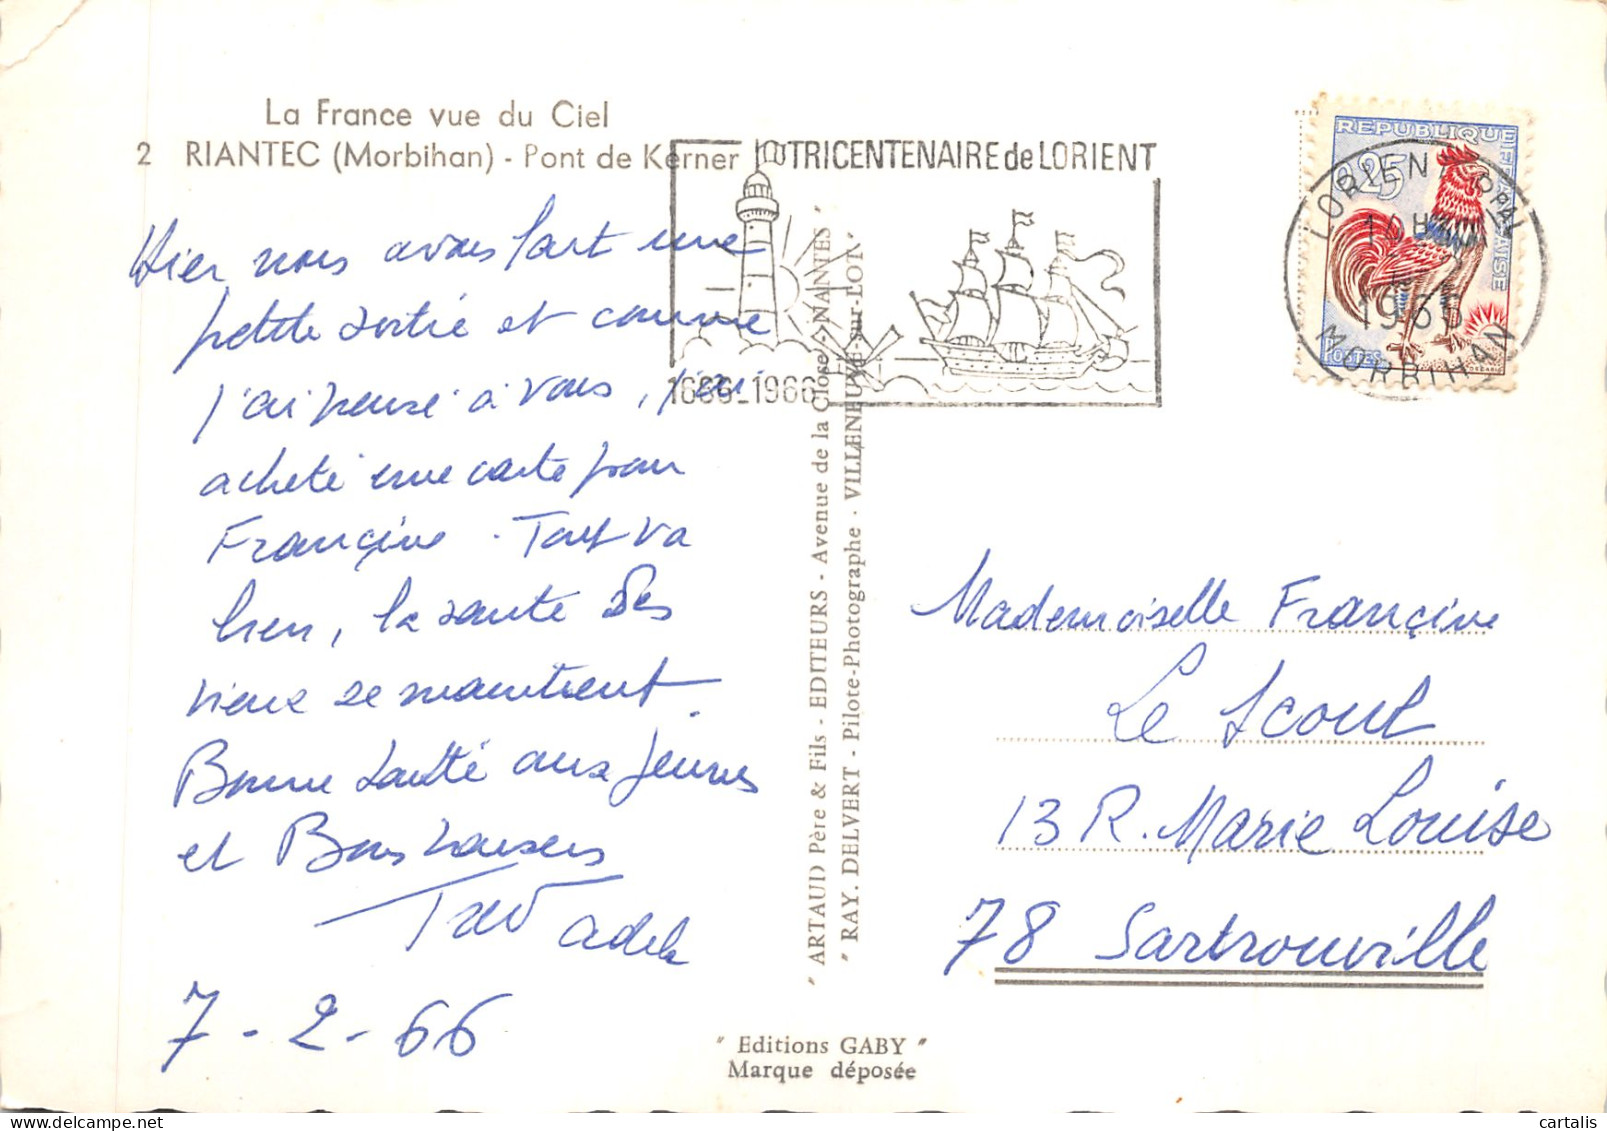 La France vue du Ciel
2 RIANTEC (Morbihan) - Pont de Kerner
TRICENTENAIRE de LORIENT
1666-1966
REPUBLIQUE FRANÇAISE
0,25
POSTES
LORIENT PPAL
1966
MORBIHAN
Hier nous avons fait une
petite sortie et comme
j'ai pensé à vous, j'ai
acheté une carte pour
Françine. Tout va
bien, la santé des
vieux se maintient.
Bonne santé aux jeunes
et Bons baisers
7-2-66
"ARTAUD Père & Fils - EDITEURS - Avenue de la Close - NANTES"
"RAY. DELVERT - Pilote-Photographe - VILLENEUVE-sur-LOT"
Mademoiselle Françine
Le Scout
13 R. Marie Louise
78 Sartrouville
"Editions GABY"
Marque déposée
cartalis